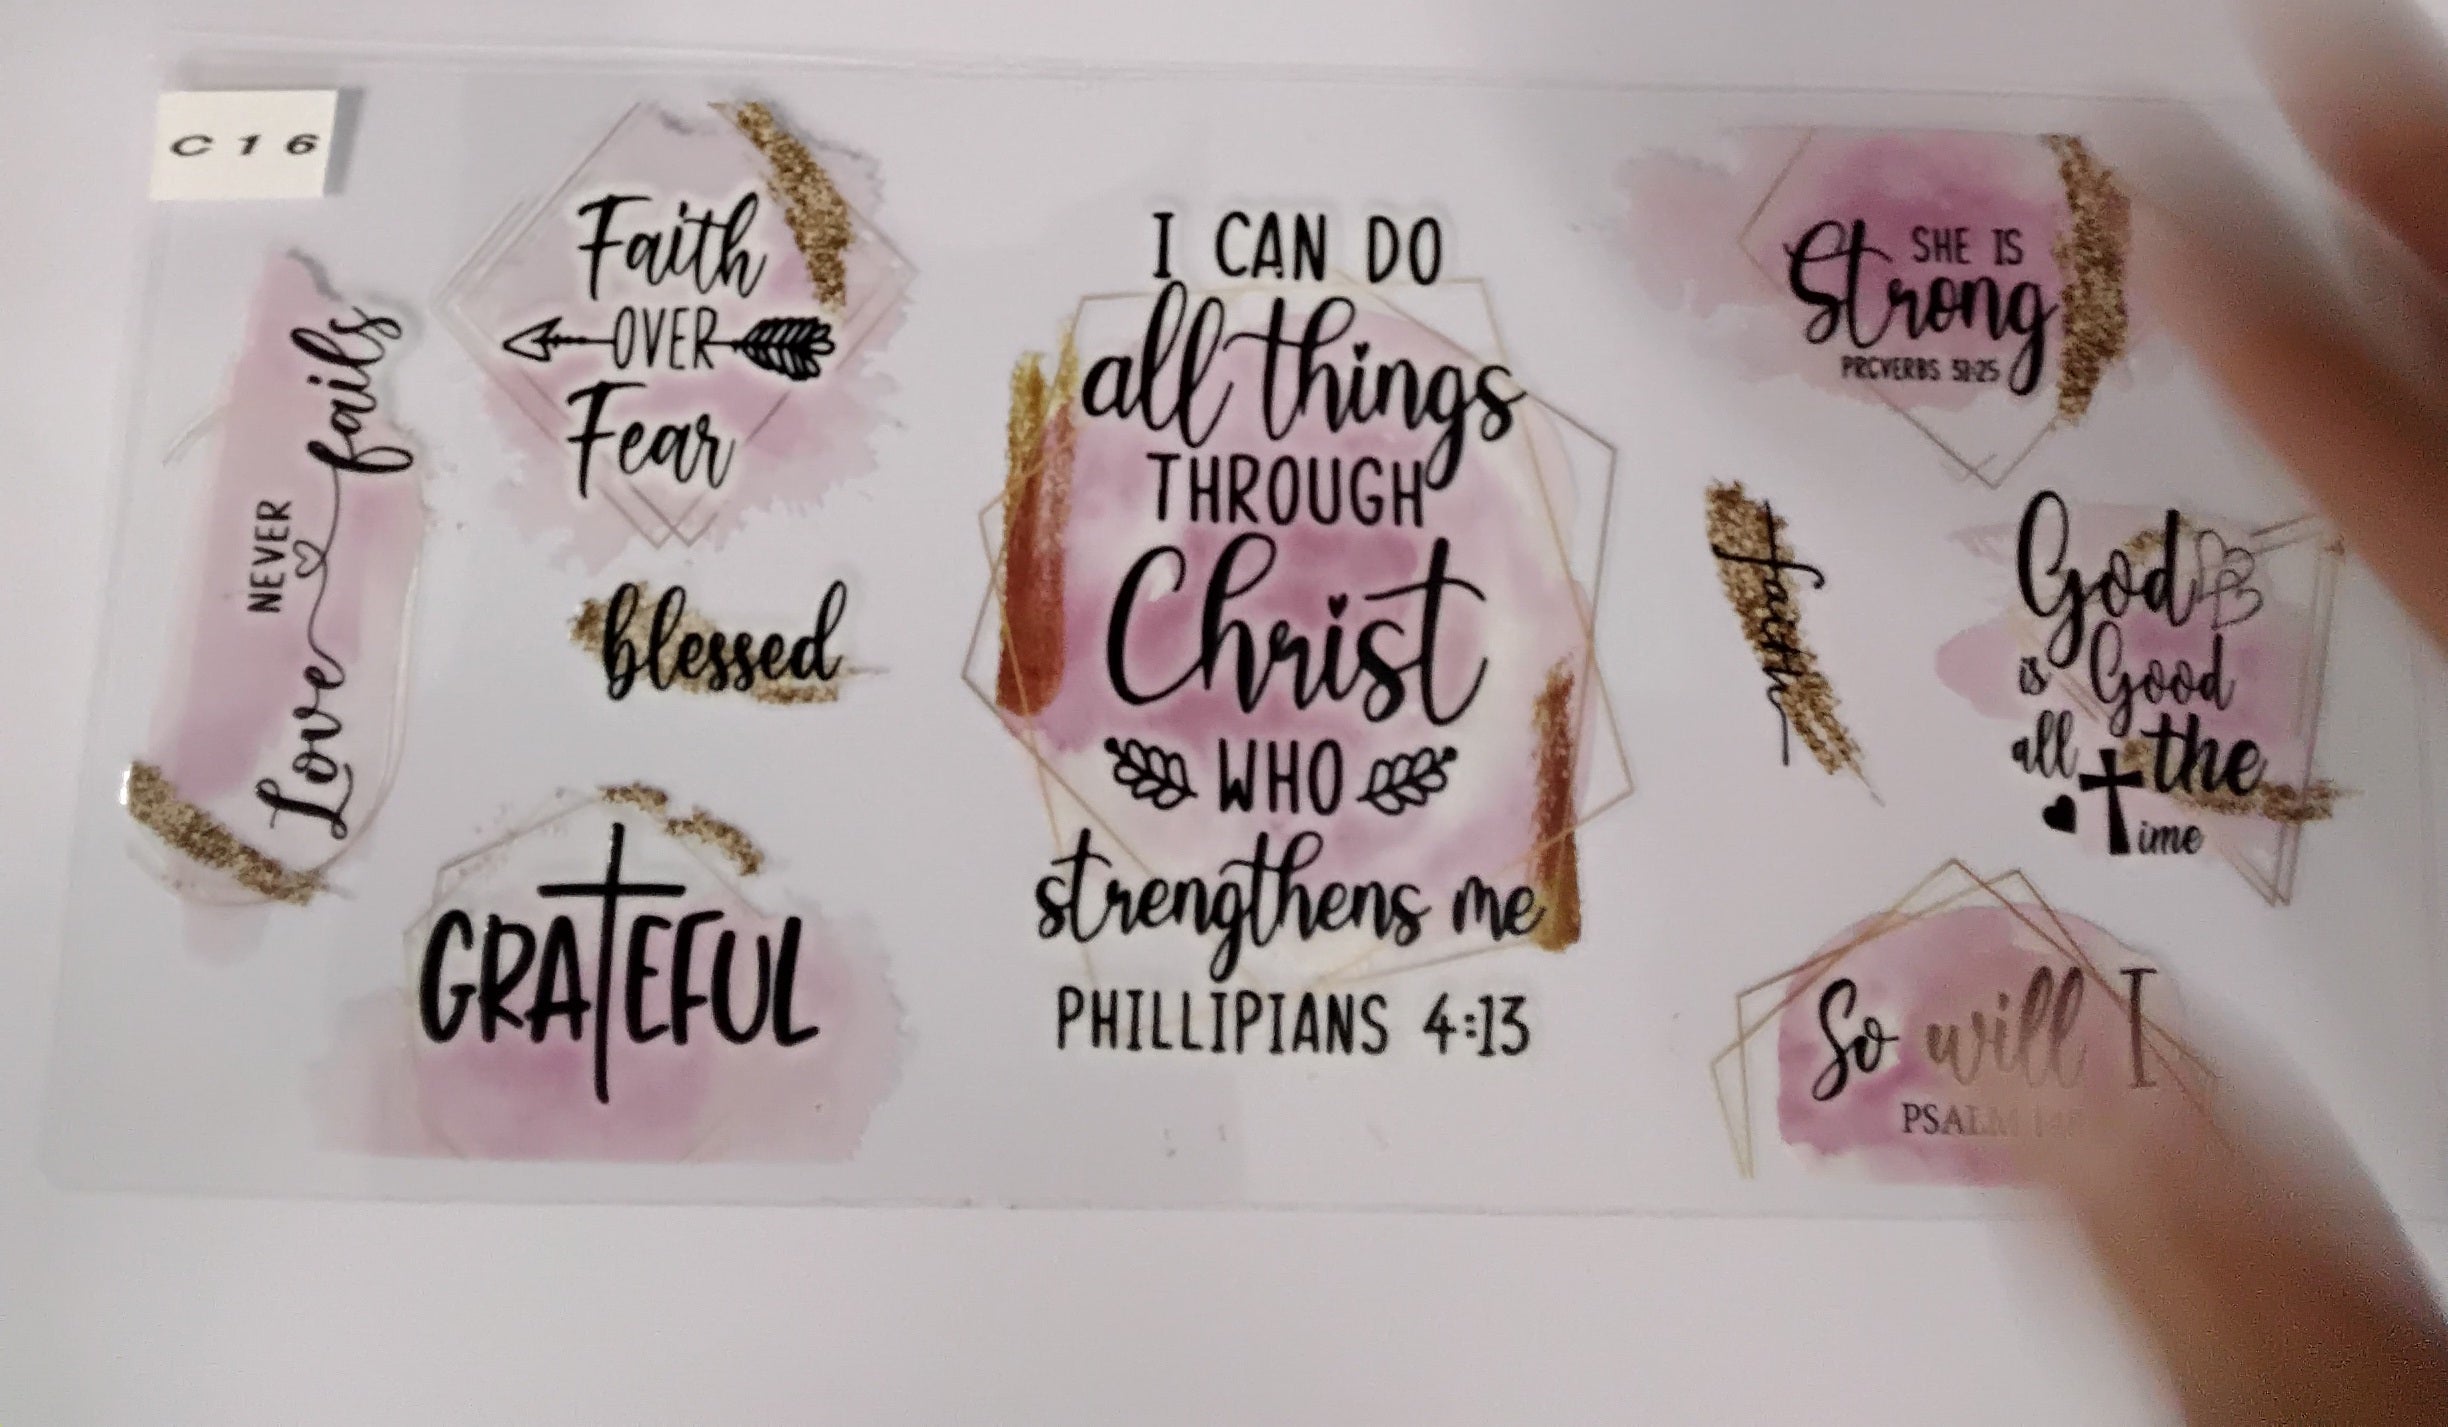 C 1 6
Love NEVER fails
Faith
OVER
Fear
blessed
GRATEFUL
I CAN DO
all things
THROUGH
Christ
WHO
strengthens me
PHILLIPIANS 4:13
SHE IS
Strong
faith
God
is Good
all the
Time
So will I
PSALM